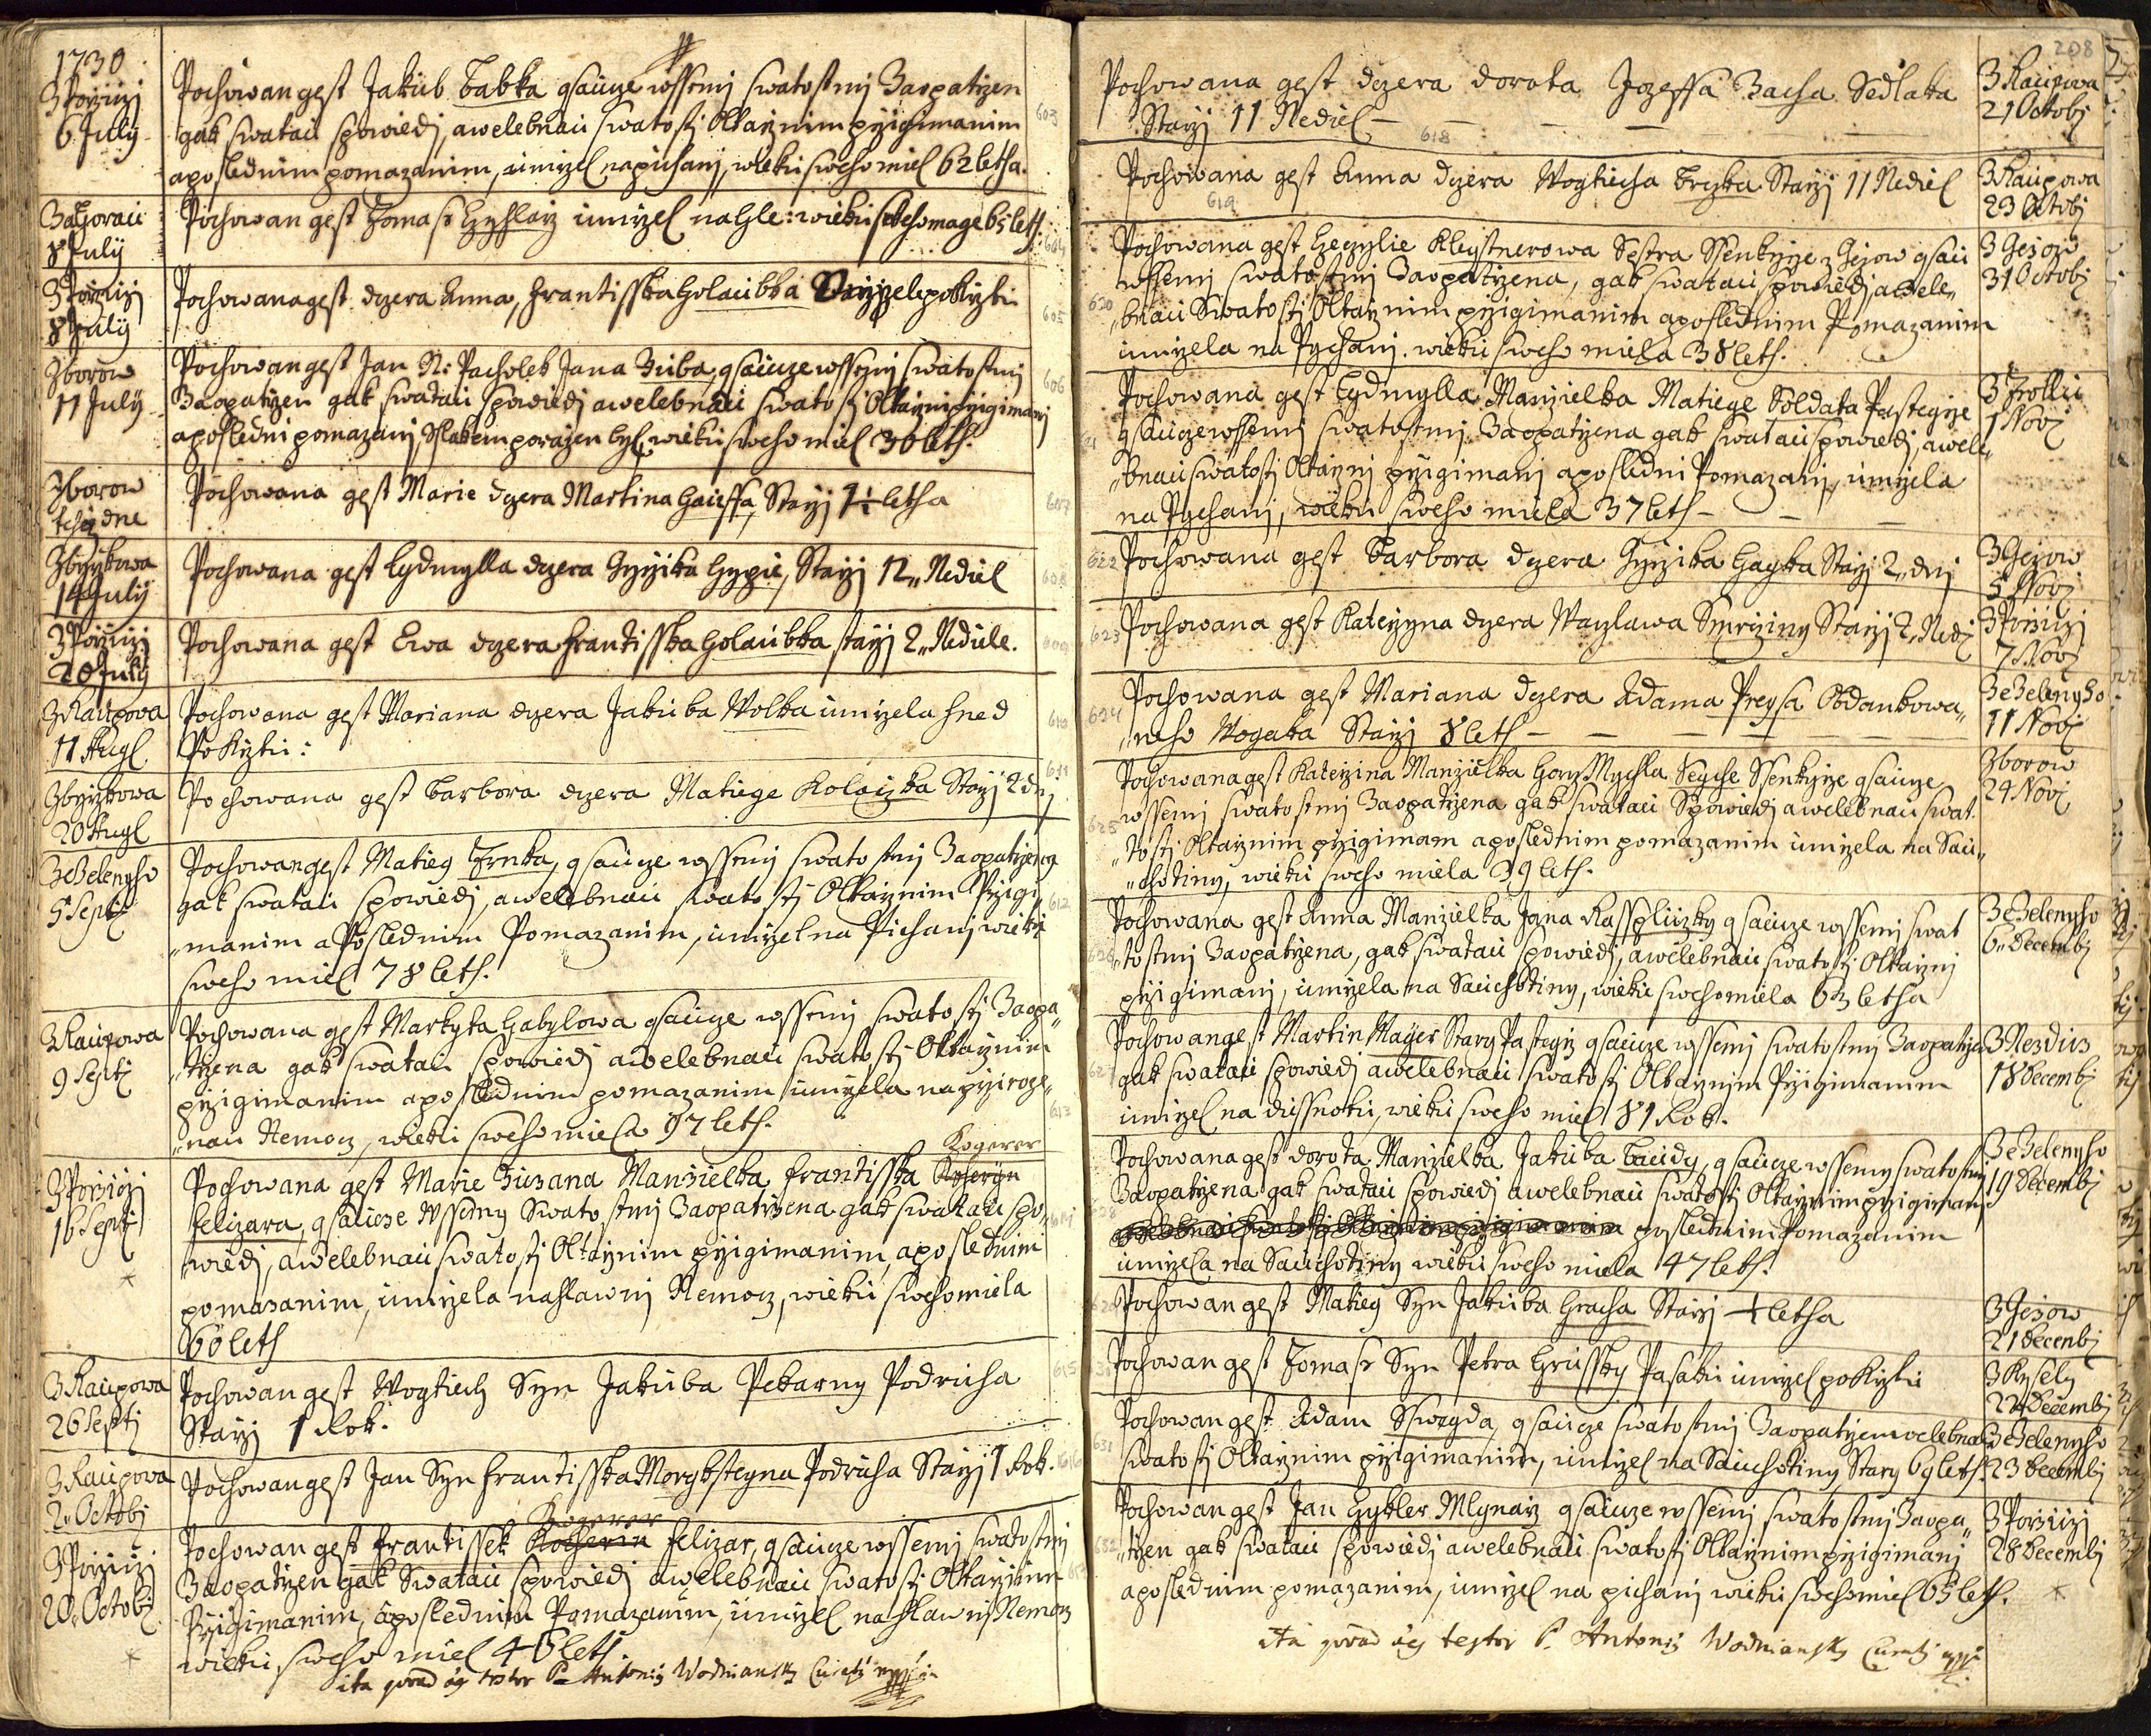 1730
Z Porziczj
6 July
Pochowan gest Jakub Babka gsaucze wssemj swatostmj Zaopatrzen
gak swatau spowiedj, a welebnau swatostj Oltarznim przigimanim
a poslednim pomazanim, umrzel na pichanj, wieku sweho miel 62 letha.
603
8 July
Pochowan gest Tomass umrzel na wieku sweho mage 65 leth.
604
Z Porziczj
8 July
Pochowana gest dczera Anna, Frantisska Holaubka po krztu
605
Zborow
11 July
Pochowan gest Jan N: Pacholek Jana Zuba, gsaucze wssemj swatostmj
Zaopatrzen gak swatau spowiedj a welebnau swatostj Oltarznj przigimanj
a poslednj pomazanj Sslakem porazen byl, wieku sweho miel 30 leth.
606
Zborow
Pochowana gest Marie dczera Martina Haussa, Starzj letha
607
14 July
Pochowana gest Lydmylla dczera Girzika Hypie, Starzj 12 Nediel
608
Z Porziczj
20 July
Pochowana gest Ewa dczera Frantisska Holaubka starzj 2 Nediele.
609
Z Raupowa
11 Augl
Pochowana gest Mariana dczera Jakuba Wolka umrzela hned
Po Krztu:
610
20 Augl
Pochowana gest Barbora dczera Matiege Kolarzka Starzj 2 dnj
611
Ze Zelenyho
5 Septj
Pochowan gest Matieg Trnka, gsaucze wssemj swatostmj Zaopatrzeng
gak swatau spowiedj, a welebnau swatostj Oltarznim Przigi„
„manim a Poslednim Pomazanim, umrzel na Pichanj wieku
sweho miel 78 leth.
612
Z Raupowa
9 Septj
Pochowana gest Markyta Gabylowa gsaucze wssemj swatostj Zaopa„
„trzena gak swatau spowiedj a welebnau swatostj Oltarznim
przigimanim a poslednim pomazanim umrzela na prziroze„
„nau Nemocz, wieku sweho miela 97 leth.
613
Z Porziczj
16 Septj
*
Kogerer
Pochowana gest Marie Zuzana Manzielka Frantisska
Felizara, gsaucze wssemy Swatostmj Zaopatrzena gak swatau spo„
wiedj, a welebnau swatostj Oltarznim przigimanim, a poslednim
pomazanim, umrzela na hlawnj Nemocz, wieku sweho miela
60 leth
614
Z Raupowa
26 Septj
Pochowan gest Wogtiech Syn Jakuba Pekarny Podruha
Starzj 1 Rok.
615
Z Raupowa
2 Octobj
Pochowan gest Jan Syn Frantisska Morgksteyna Podruha Starzj 1 Rok.
616
Z Porziczj
20 Octobj
*
Kogerer
Pochowan gest Frantissek Felizar, gsaucze wssemj swatostmj
Zaopatrzen gak Swatau spowiedj a welebnau swatostj Oltarznim
Przigimanim, a poslednim Pomazanim, umrzel na hlawnj Nemocz
wieku sweho miel 46 leth.
ita testor P. Antonius Wodniansky Curatj
208
Pochowana gest dczera dorota Jozeffa Zacha Sedlaka
Starzj 11 Nediel
618
Z Raupowa
21 Octobj
Pochowana gest Anna dczera Wogtiecha Brzka Starzj 11 Nediel
619
Z Raupowa
23 Octobj
Pochowana gest Cecylie Kleystnerowa Sestra Ssenkyrze z Gezow gsau
wssemj swatostmj Zaopatrzena, gak swatau spowiedj a wele„
„bnau Swatostj Oltarznim przigimanim a poslednim Pomazanim
umrzela na Pychanj. wieku sweho miela 38 leth.
620
Z Gezow
31 Octobj
Pochowana gest Lydmylla Manzielka Matiege Soldata Pastegrze
gsaucze wssemj swatostmj Zaopatrzena gak swatau spowiedj, a wele„
„bnau swatostj Oltarznj przigimanj a poslednj Pomazanj, umrzela
na Pychanj, wieku sweho miela 37 leth
1 Novj
622
Pochowana gest Barbora dczera Girzika Hayka Starzj 2 dnj
Z Gezow
5 Novj
623
Pochowana gest Katerzyna dczera Waczlawa Smrcziny Starzj 2 Nedj
Z Porziczj
7 Novj
624
Pochowana gest Mariana dczera Adama Preysa Obdankowa„
„neho Wogaka Starzj 8 leth
Ze Zelenyho
11 Novj
Pochowana gest Katerzina Manzielka Ssenkyrze gsaucze
wssemj swatostmj Zaopatrzena gak swatau Spowiedj a welebnau swat.
„tostj Oltarznim przigimanim a poslednim pomazanim umrzela na Sau„
„chotiny, wieku sweho miela 39 leth.
625
Zborow
24 Novj
Pochowana gest Anna Manzielka Jana Rassplиczky gsaucze wssemj swat
„tostmj Zaopatrzena, gak swatau spowiedj, a welebnau swatostj Oltarznj
przigimanj, umrzela na Sauchotiny, wieku sweho miela 63 letha
626
Ze Zelenyho
6 Decembj
Pochowan gest Martin Mayer Stary Pastegrz gsaucze wssemj swatostmj Zaopatrzen
gak swatau spowiedj a welebnau swatostj Oltarznim Przigimanim
umrzel na dussnotu, wieku sweho miel 81 Rok.
627
Z Nezdius
18 Decembj
Pochowana gest dorota Manzielka Jakuba Baudy, gsaucze wssemy swatostmj
Zaopatrzena gak swatau spowiedj a welebnau swatostj Oltarznim przigimanj
poslednim Pomazanim
umrzela na Sauchotiny wieku sweho miela 47 leth.
Ze Zelenyho
19 Decembj
Pochowan gest Matieg Syn Jakuba Hracha Starzj letha
Z Gezow
21 Decembj
Pochowan gest Tomass Syn Petra Hrussky Pasaku umrzel po Krztu
Z Kysely
22 Decembj
Pochowan gest Adam Sswegda, gsaucze swatostmj Zaopatrzen welebnau
swatostj Oltarznim przigimanim, umrzel na Sauchotiny, Stary 69 leth.
631
Ze Zelenyho
23 Decembj
Pochowan gest Jan Gykler Mlynarz gsaucze wssemj swatostmj Zaopa„
„trzen gak swatau spowiedj a welebnau swatostj Oltarznim przigimanj
a poslednim pomazanim, umrzel na pichanj wieku sweho miel 65 leth. *
632
Z Porziczj
28 Decembj
ita testor P. Antonius Wodniansky Curatj